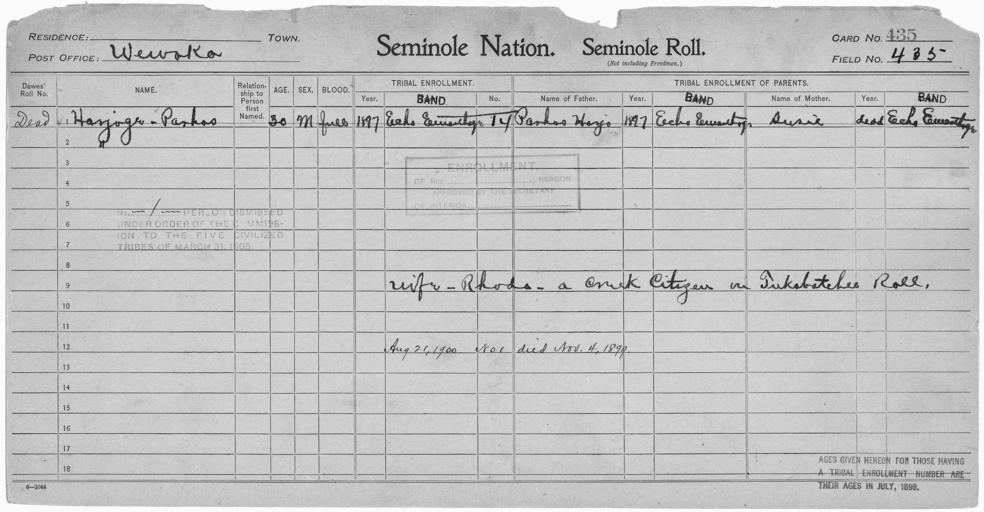 RESIDENCE: TOWN.
POST OFFICE: Wewoka
Seminole Nation. Seminole Roll.
(Not including Freedmen.)
CARD NO. 435
FIELD NO. 435
Dawes' Roll No. NAME. Relationship to Person first Named. AGE. SEX. BLOOD. TRIBAL ENROLLMENT. TRIBAL ENROLLMENT OF PARENTS.
Year. BAND No. Name of Father. Year. BAND Name of Mother. Year. BAND
Dead 1 Harjoge - Parhos 30 M full 1897 Echo 14 Parhos Harjo 1897 Echo Susie dead Echo
2
3
4
5
6
7
8
9
10
11
12
13
14
15
16
17
18
ENROLLMENT
OF Nos. HEREON
APPROVED BY THE SECRETARY
OF INTERIOR
No. 1 PERSON DISMISSED
UNDER ORDER OF THE COMMISSION
TO THE FIVE CIVILIZED
TRIBES OF MARCH 31, 1905.
wife - Rhoda - a Creek Citizen on Tukabatchee Roll.
Aug 21, 1900 No 1 died Nov. 4, 1899.
AGES GIVEN HEREON FOR THOSE HAVING
A TRIBAL ENROLLMENT NUMBER ARE
THEIR AGES IN JULY, 1898.
6-2044